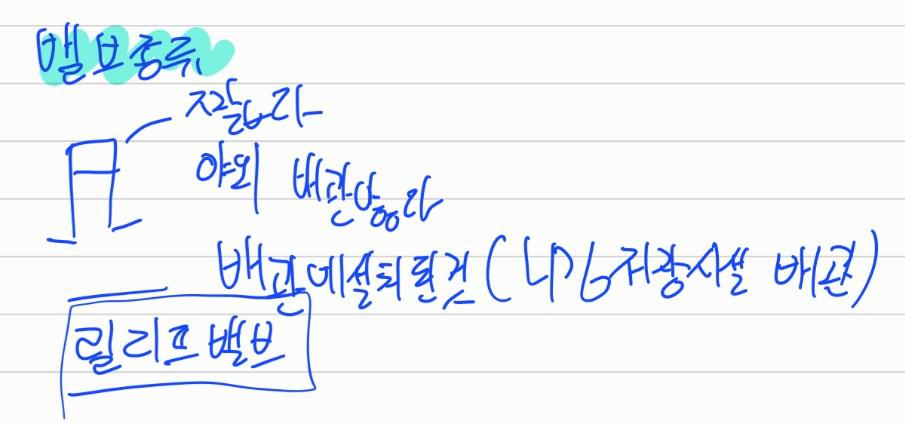 밸브종류
짧다
야외 배관양라
배관에설치된것(LPG저장시설 배관)
릴리프밸브